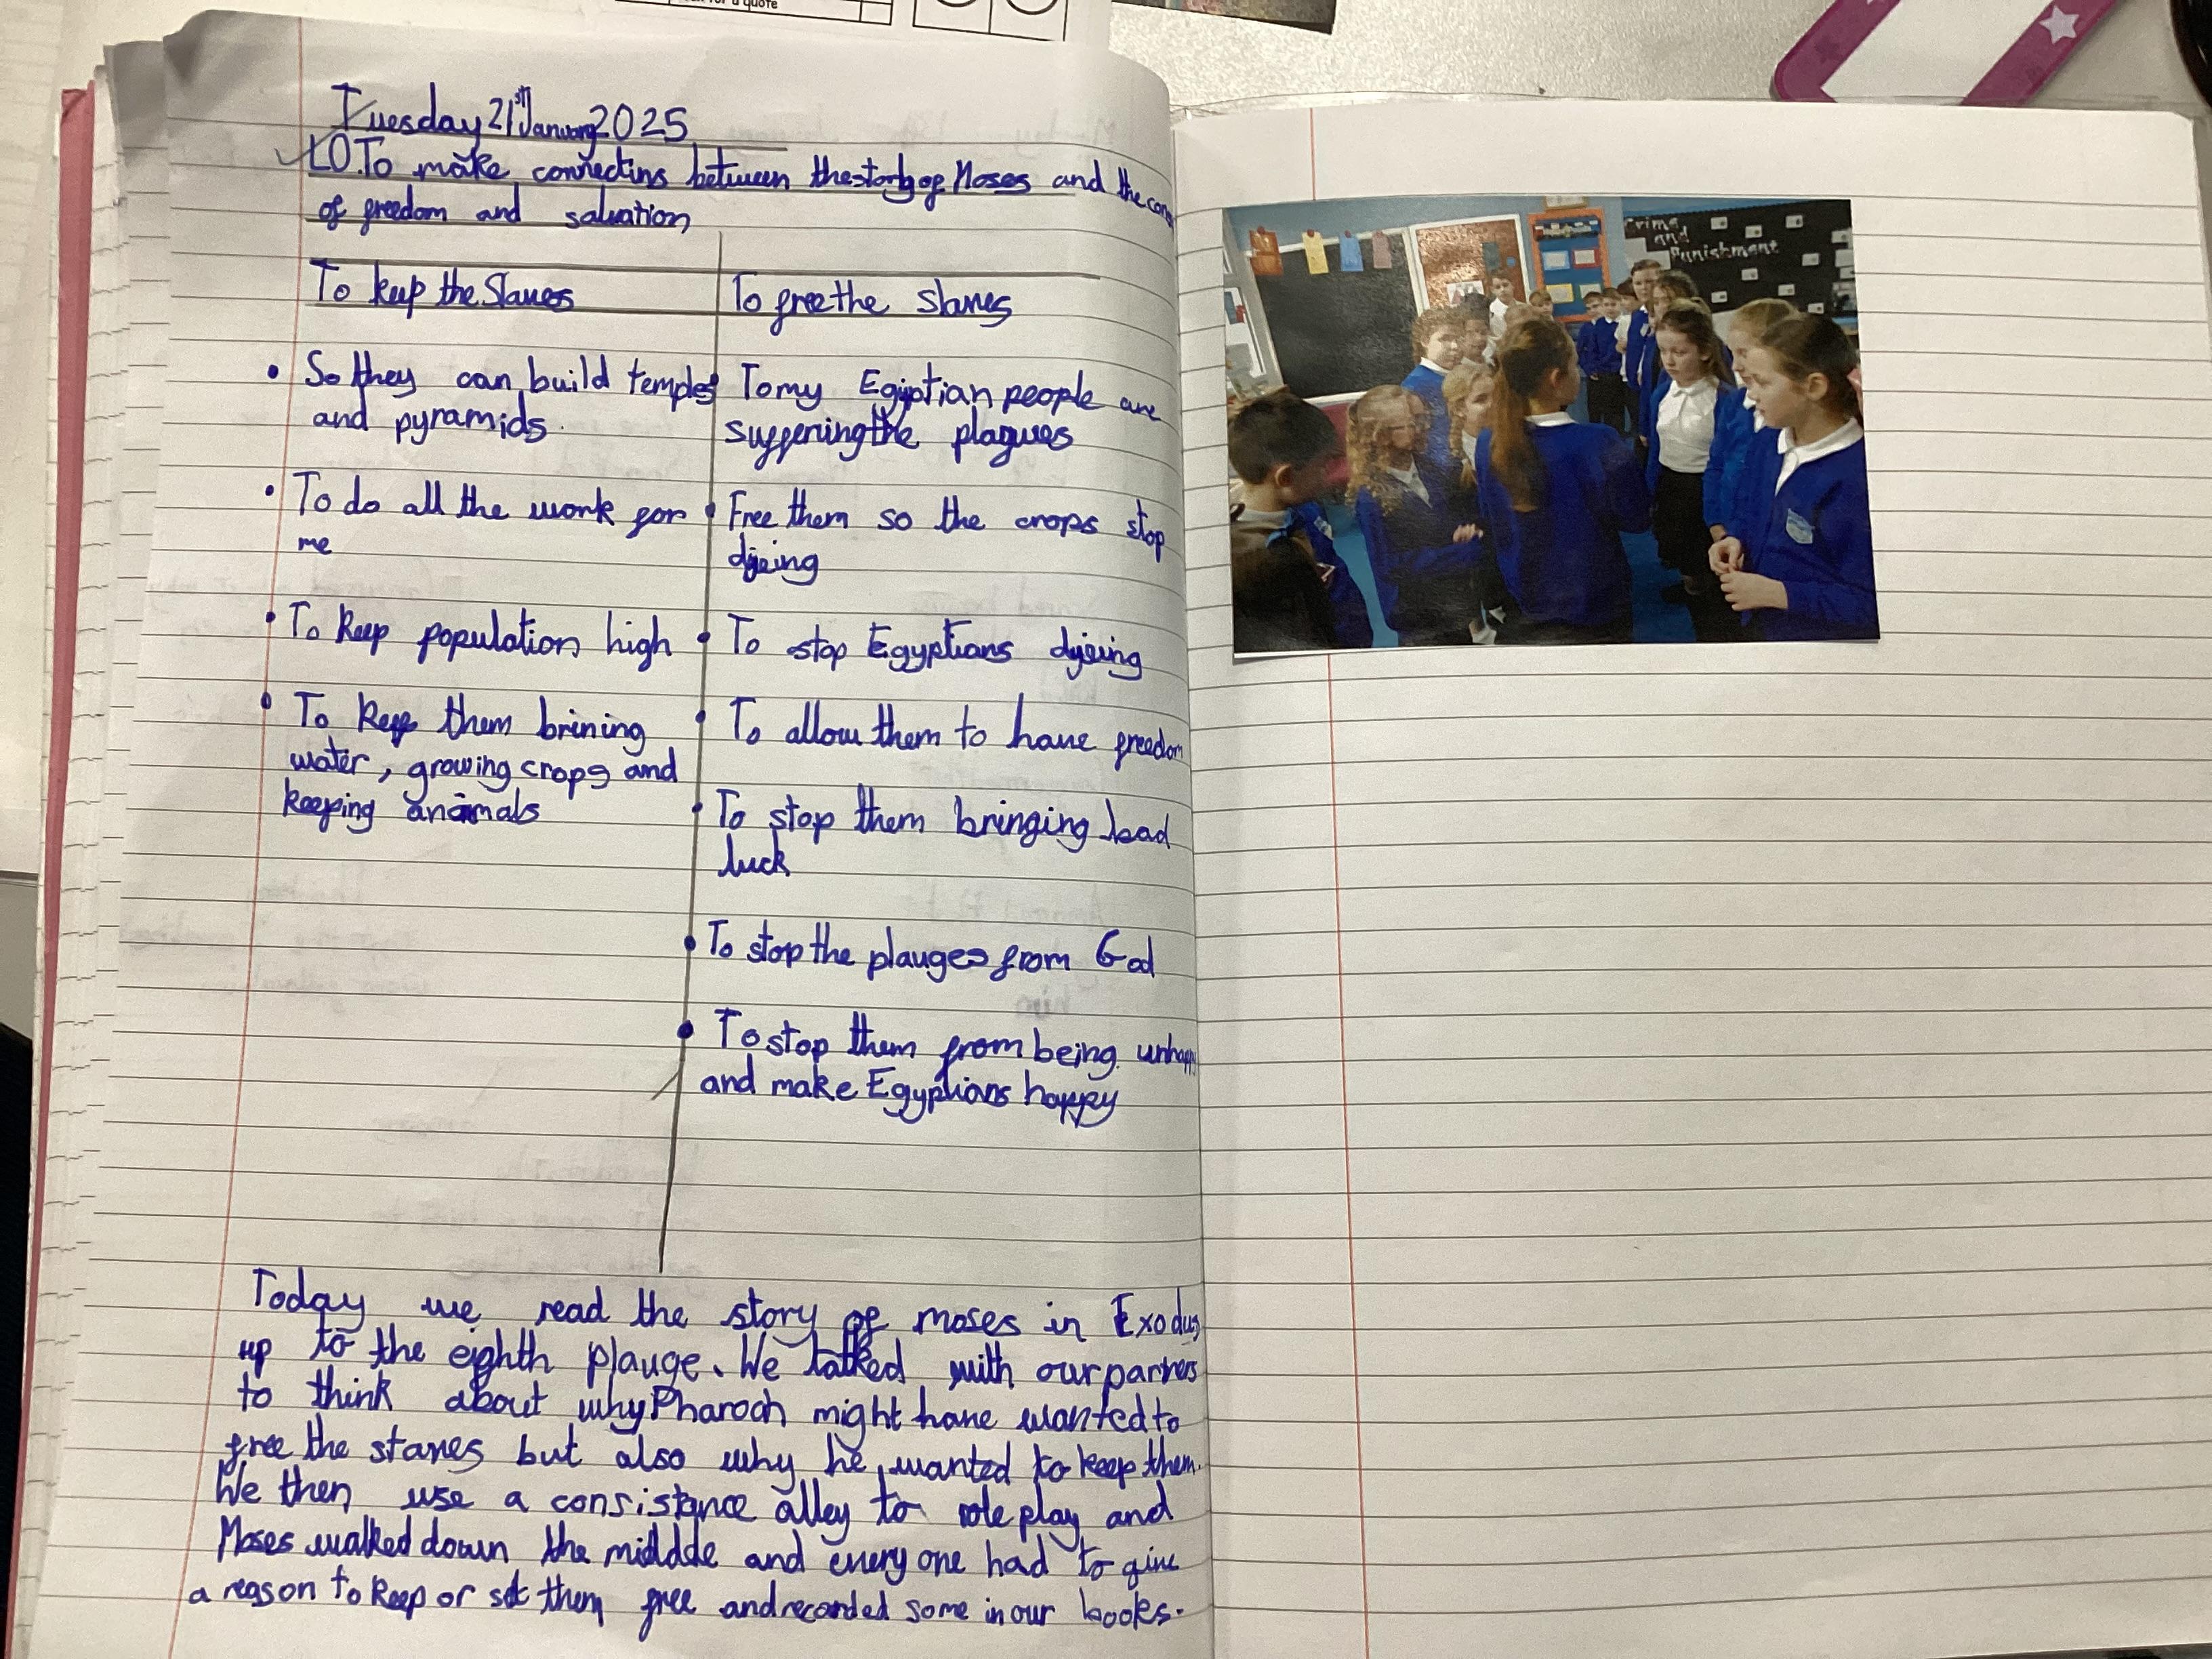 for a quote
Tuesday 21st January 2025
LO.To make connectins between the story of Moses and the
of freedom and salvation
To keep the Slaves
To free the slaves
• So they can build temples
and pyramids.
• To do all the work for
me
• To keep population high
• To keep them brining
water, growing crops and
keeping anaimals
• To my Egiptian people are
suffering the plagues
• Free them so the crops stop
djeing
• To stop Egyptians djeing
• To allow them to have freedom
• To stop them bringing bad
luck
• To stop the plauges from God
• To stop them from being unhappy
and make Egyptians happy
Today we read the story of moses in Exodus
up to the eighth plauge. We talked with our parners
to think about why Pharoah might have wanted to
free the slaves but also why he wanted to keep them.
We then use a consistance alley to role play and
Moses walked down the middde and every one had to give
a reason to keep or set them free and recorded some in our books.
Crime
and
Punishment